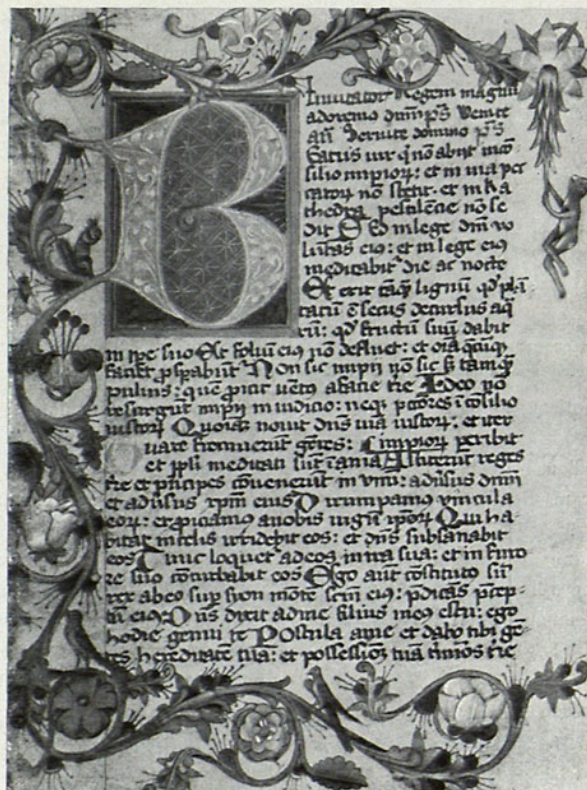 Invitator Regem magnū
adoremus dnm ps Venite
añ Servite domino ps
Eatus vir q nō abiit in cō
silio impioꝝ: et in via pec
catoꝝ nō stetit: et in ka
thedra pestilencie nō se
dit Sed in lege dnī vo
lūtas eiꝰ: et in lege eiꝰ
meditabit die ac nocte
Et erit tāqꝫ lignū qd plā
tatū ē secus decursus aq
rū: qd fructū suū dabit
in tpe suo Et foliū eiꝰ nō defluet: et oīa quecūqꝫ
faciet ꝓsperabūt Non sic impii nō sic sꝫ tamqꝫ
pulvis: quē ꝓicit ventꝰ afacie tre Ideo nō
resurgūt impii in iudicio: neqꝫ pctores ī cōsilio
iustoꝝ Quoniā novit dns viā iustoꝝ: et iter
uare fremuerūt gētes: impioꝝ peribit
et ppli meditati sūt īania Astiterūt reges
tre et principes cōvenerūt in vnū: adūsus dnm
et adūsus xpm eius Dirumpamꝰ vincula
eoꝝ: et ꝓiciamꝰ anobis iugū ipoꝝ Qui ha
bitat in celis irridebit eos: et dns subsanabit
eos Tunc loquet ad eos in ira sua: et in furo
re suo cōturbabit eos Ego aūt cōstitutꝰ sū
rex abeo sup sion monte scm eiꝰ: pdicās pcep
tū eiꝰ Dns dixit ad me filius meꝰ es tu: ego
hodie genui te Postula ame et dabo tibi gē
tes hereditatē tuā: et possessioꝫ tuā tminos tre